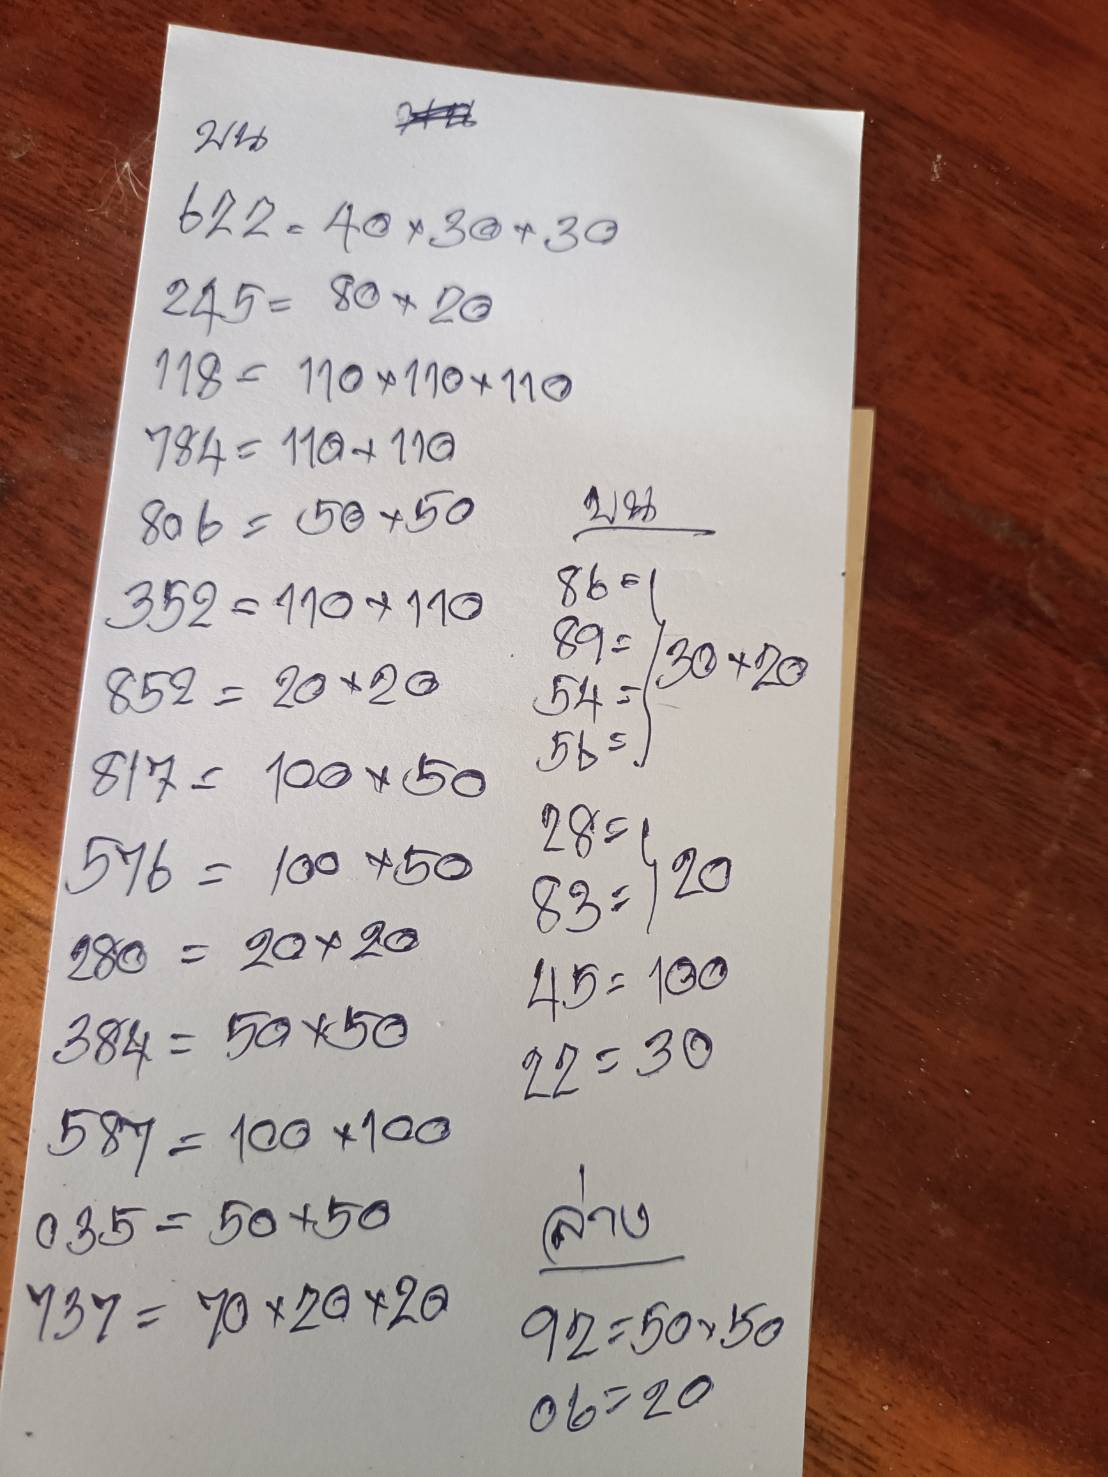 บน
622 = 40 × 30 × 30
245 = 80 × 20
118 = 110 × 110 × 110
784 = 110 × 110
806 = 50 × 50
352 = 110 × 110
852 = 20 × 20
817 = 100 × 50
576 = 100 × 50
280 = 20 × 20
384 = 50 × 50
587 = 100 × 100
035 = 50 × 50
737 = 70 × 20 × 20
บน
86 =
89 =
54 =
56 =
30 × 20
28 =
83 =
20
45 = 100
22 = 30
ล่าง
92 = 50 × 50
06 = 20